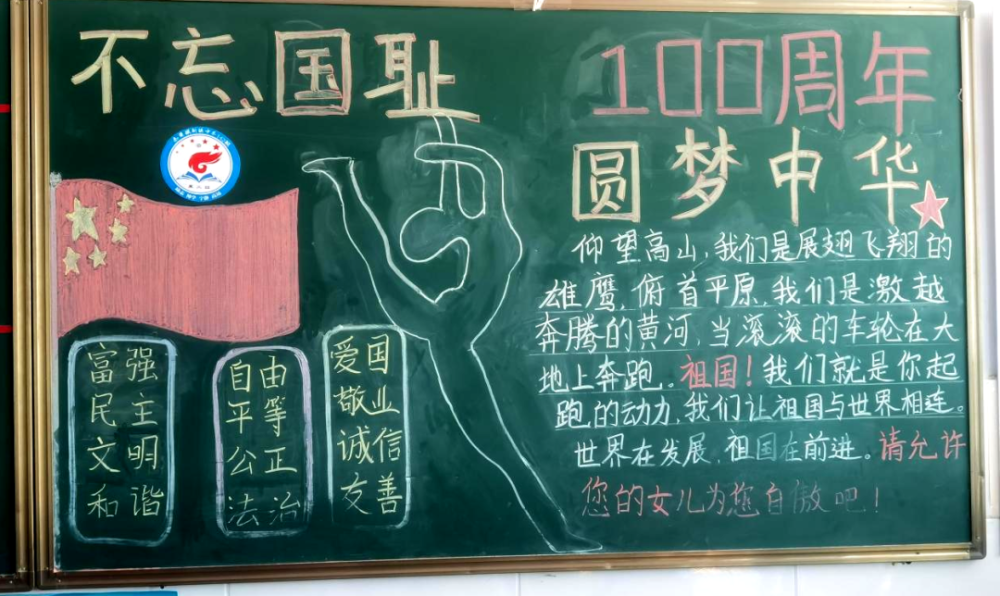 不忘国耻
100周年
圆梦中华
仰望高山,我们是展翅飞翔的
雄鹰,俯首平原,我们是激越
奔腾的黄河,当滚滚的车轮在大
地上奔跑。祖国!我们就是你起
跑的动力,我们让祖国与世界相连。
世界在发展,祖国在前进。请允许
您的女儿为您自傲吧!
富强
民主
文明
和谐
自由
平等
公正
法治
爱国
敬业
诚信
友善